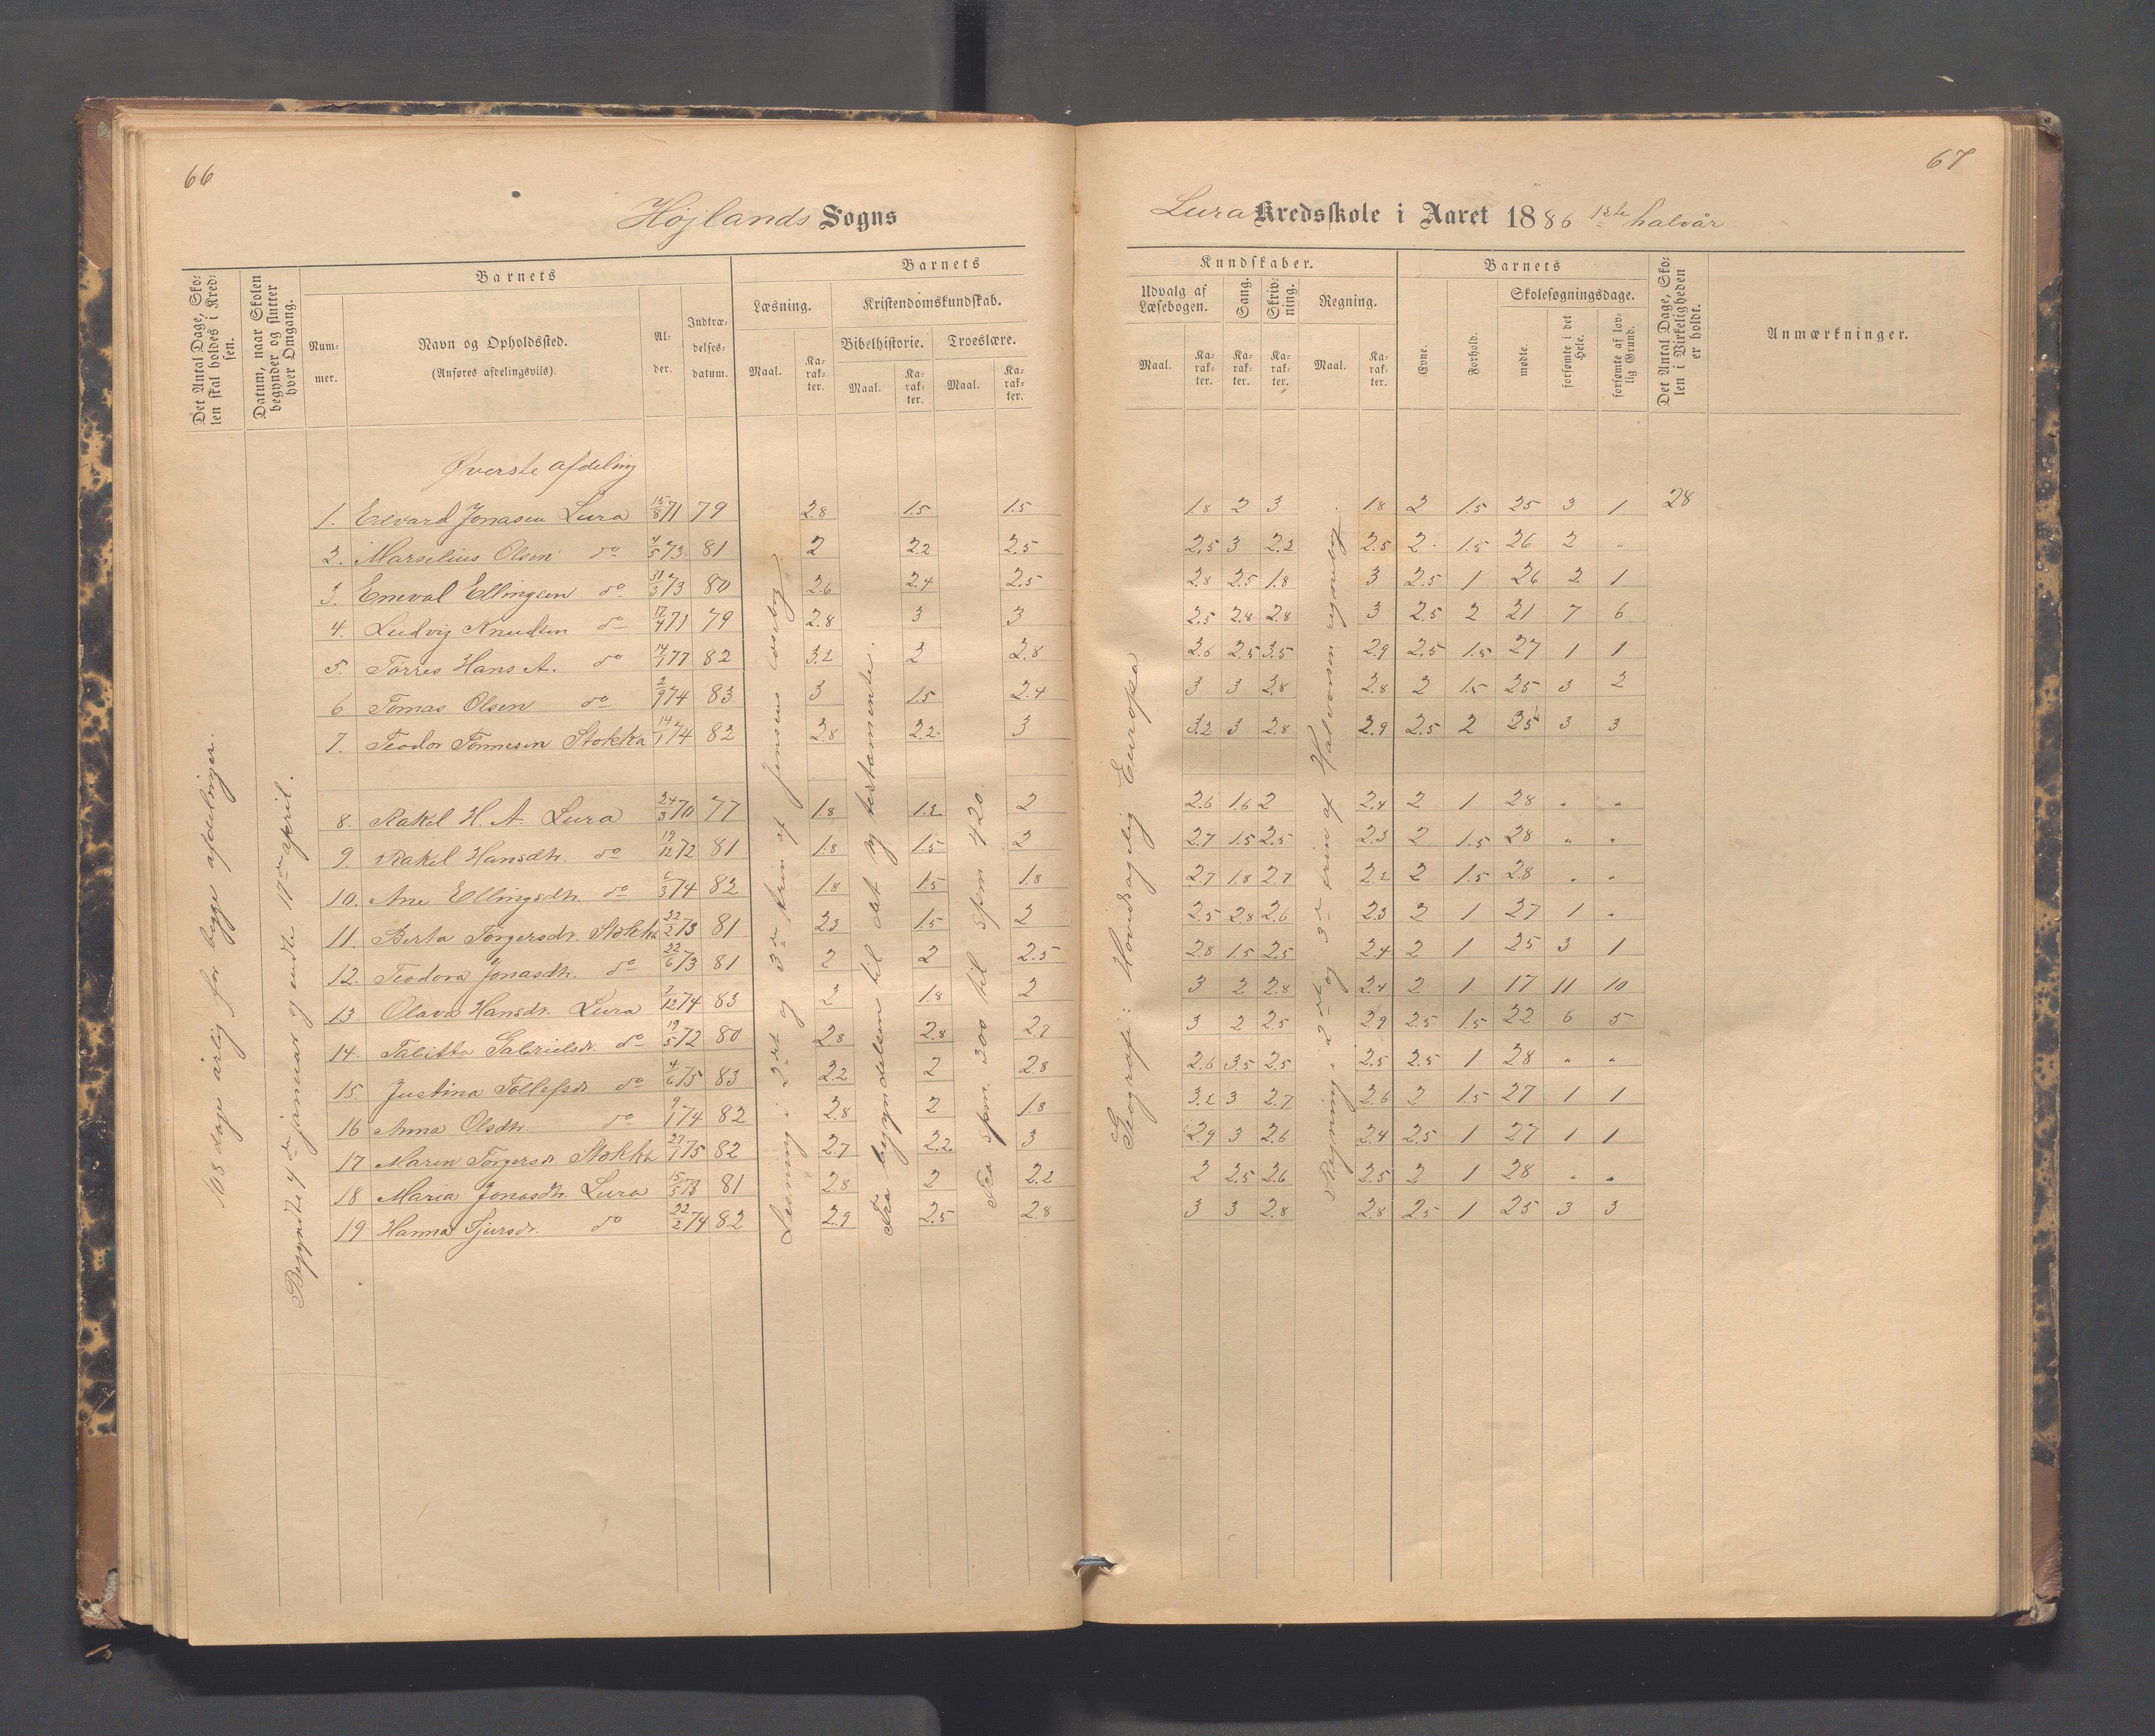 66
Højlands Sogns
Det Antal Dage, Sko-
len skal holdes i Kred-
sen.
Datum, naar Skolen
begynder og slutter
hver Omgang.
Barnets
Num-
mer.
Navn og Opholdssted.
(Anføres afdelingsviis).
Al-
der.
Indtræ-
delses-
datum.
Barnets
Læsning.
Kristendomskundskab.
Bibelhistorie.
Troeslære.
Maal.
Ka-
rak-
ter.
Maal.
Ka-
rak-
ter.
Maal.
Ka-
rak-
ter.
168 dage årlig for begge afdelinger.
Begyndte 4de januar og endte 17de april.
Øverste afdeling
1. Edvard Jonasen Lura 15/8 71 79 2.8 1.5 1.5
2. Marselius Olsen do 4/5 73 81 2 2.2 2.5
3. Eneval Ellingsen do 31/3 73 80 2.6 2.4 2.5
4. Ludvig Knudsen do 17/4 71 79 2.8 3 3
5. Tørres Hans A. do 14/1 77 82 3.2 2 2.8
6 Tomas Olsen do 2/9 74 83 3 1.5 2.4
7. Teodor Tønnesen Stokka 14/1 74 82 2.8 2.2 3
8. Rakel H. A. Lura 24/3 70 77 1.8 1.2 2
9. Rakel Hansdtr. do 19/12 72 81 1.8 1.5 2
10. Ane Ellingsdtr. do 6/3 74 82 1.8 1.5 1.8
11. Berta Torgersdr. Stokka 22/2 73 81 2.3 1.5 2
12. Teodora Jonasdtr. do 22/6 73 81 2 2 2.5
13. Olava Hansdr. Lura 2/12 74 83 2 1.8 2
14. Tabitta Gabrielsdr. do 19/5 72 80 2.8 2.8 2.7
15. Justina Tollefsdr. do 4/6 75 83 2.2 2 2.8
16 Anna Olsdtr. do 9/1 74 82 2.8 2 1.8
17 Maren Torgersdr Stokka 27/1 75 82 2.7 2.2 3
18 Maria Jonasdtr. Lura 15/5 73 81 2.8 2 2.2
19 Hanna Sjursdr. do 22/2 74 82 2.9 2.5 2.8
Læsning i 2det og 3de trin af Jensens læsebog.
Fra begyndelsen til det ny testamente.
Fra spm. 300 til spm 420.
67
Lura Kredsskole i Aaret 1886 1ste halvår
Kundskaber.
Udvalg af
Læsebogen.
Sang.
Skriv-
ning.
Regning.
Maal.
Ka-
rak-
ter.
Ka-
rak-
ter.
Ka-
rak-
ter.
Maal.
Ka-
rak-
ter.
Barnets
Evne.
Forhold.
Skolesøgningsdage.
mødte.
forsømte i det
Hele.
forsømte af lov-
lig Grund.
Det Antal Dage, Sko-
len i Virkeligheden
er holdt.
Anmærkninger.
1.8 2 3 1.8 2 1.5 25 3 1 28
2.5 3 2.2 2.5 2 1.5 26 2 "
2.8 2.5 1.8 3 2.5 1 26 2 1
2.5 2.8 2.8 3 2.5 2 21 7 6
2.6 2.5 3.5 2.9 2.5 1.5 27 1 1
3 3 2.8 2.8 2 1.5 25 3 2
3.2 3 2.8 2.9 2.5 2 25 3 3
2.6 1.6 2 2.4 2 1 28 " "
2.7 1.5 2.5 2.3 2 1.5 28 " "
2.7 1.8 2.7 2.2 2 1.5 28 " "
2.5 2.8 2.6 2.3 2 1 27 1 "
2.8 1.5 2.5 2.4 2 1 25 3 1
3 2 2.8 2.4 2 1 17 11 10
3 2 2.5 2.9 2.5 1.5 22 6 5
2.6 3.5 2.5 2.5 2.5 1 28 " "
3.2 3 2.7 2.6 2 1.5 27 1 1
2.9 3 2.6 2.4 2.5 1 27 1 1
2 2.5 2.6 2.5 2 1 28 " "
3 3 2.8 2.8 2.5 1 25 3 3
Geografi: Hovedsagelig Europa
Regning i 2det og 3de trin af Halvorsen regnebog.